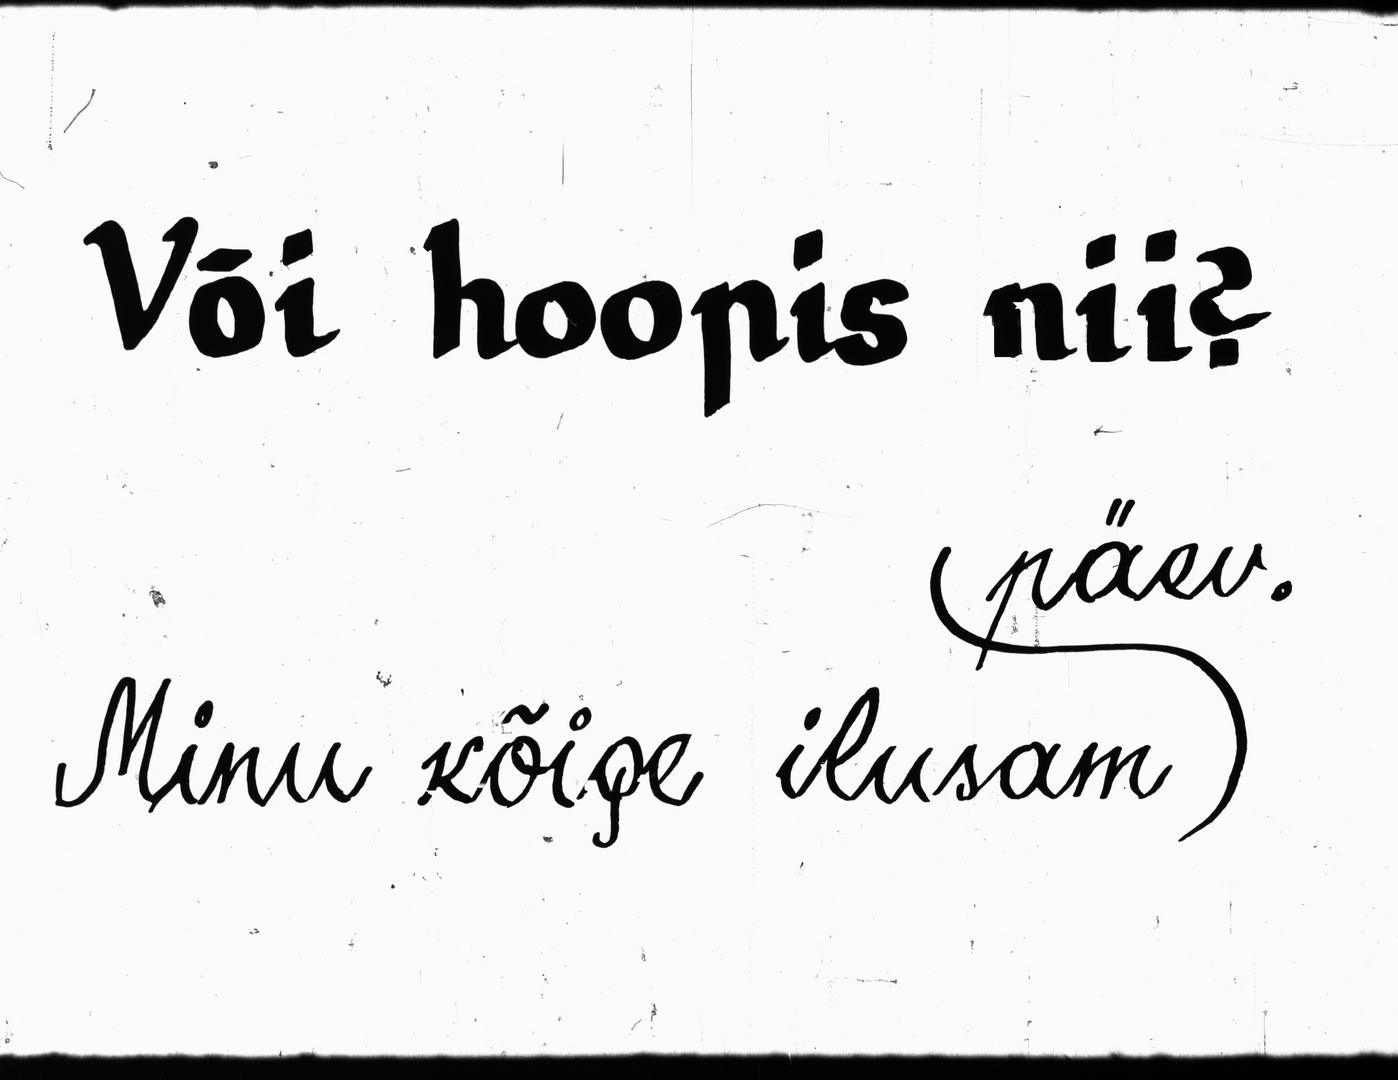 Või hoopis nii?
Minu kõige ilusam
päev.